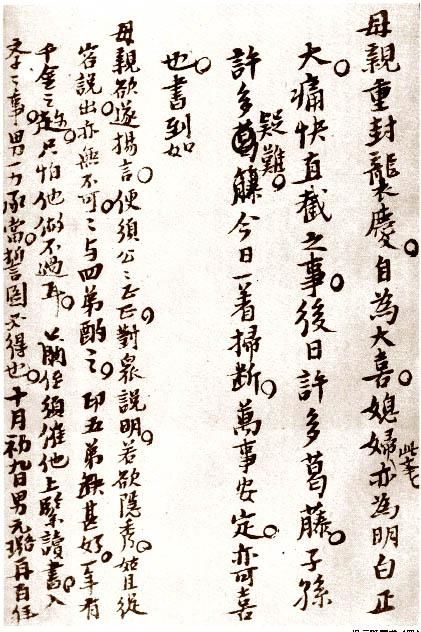 母親重封襲慶。自為大喜。媳婦此事亦為明白正
大。痛快直截之事。後日許多葛藤。子孫
許多疑難。今日一着掃斷。萬事安定。亦可喜
也。書到如
母親欲遂揚言。便須公〻正〻對眾說明。若欲隱秀。姑且從
容說出。亦無不可〻与四弟酌之。即五弟缺甚好。年有
千金之趣。只怕他做不過耳。侄須催他上緊讀書。入
之事。男一力承當。誓圖必得也。十月初九日男元璐再百拜